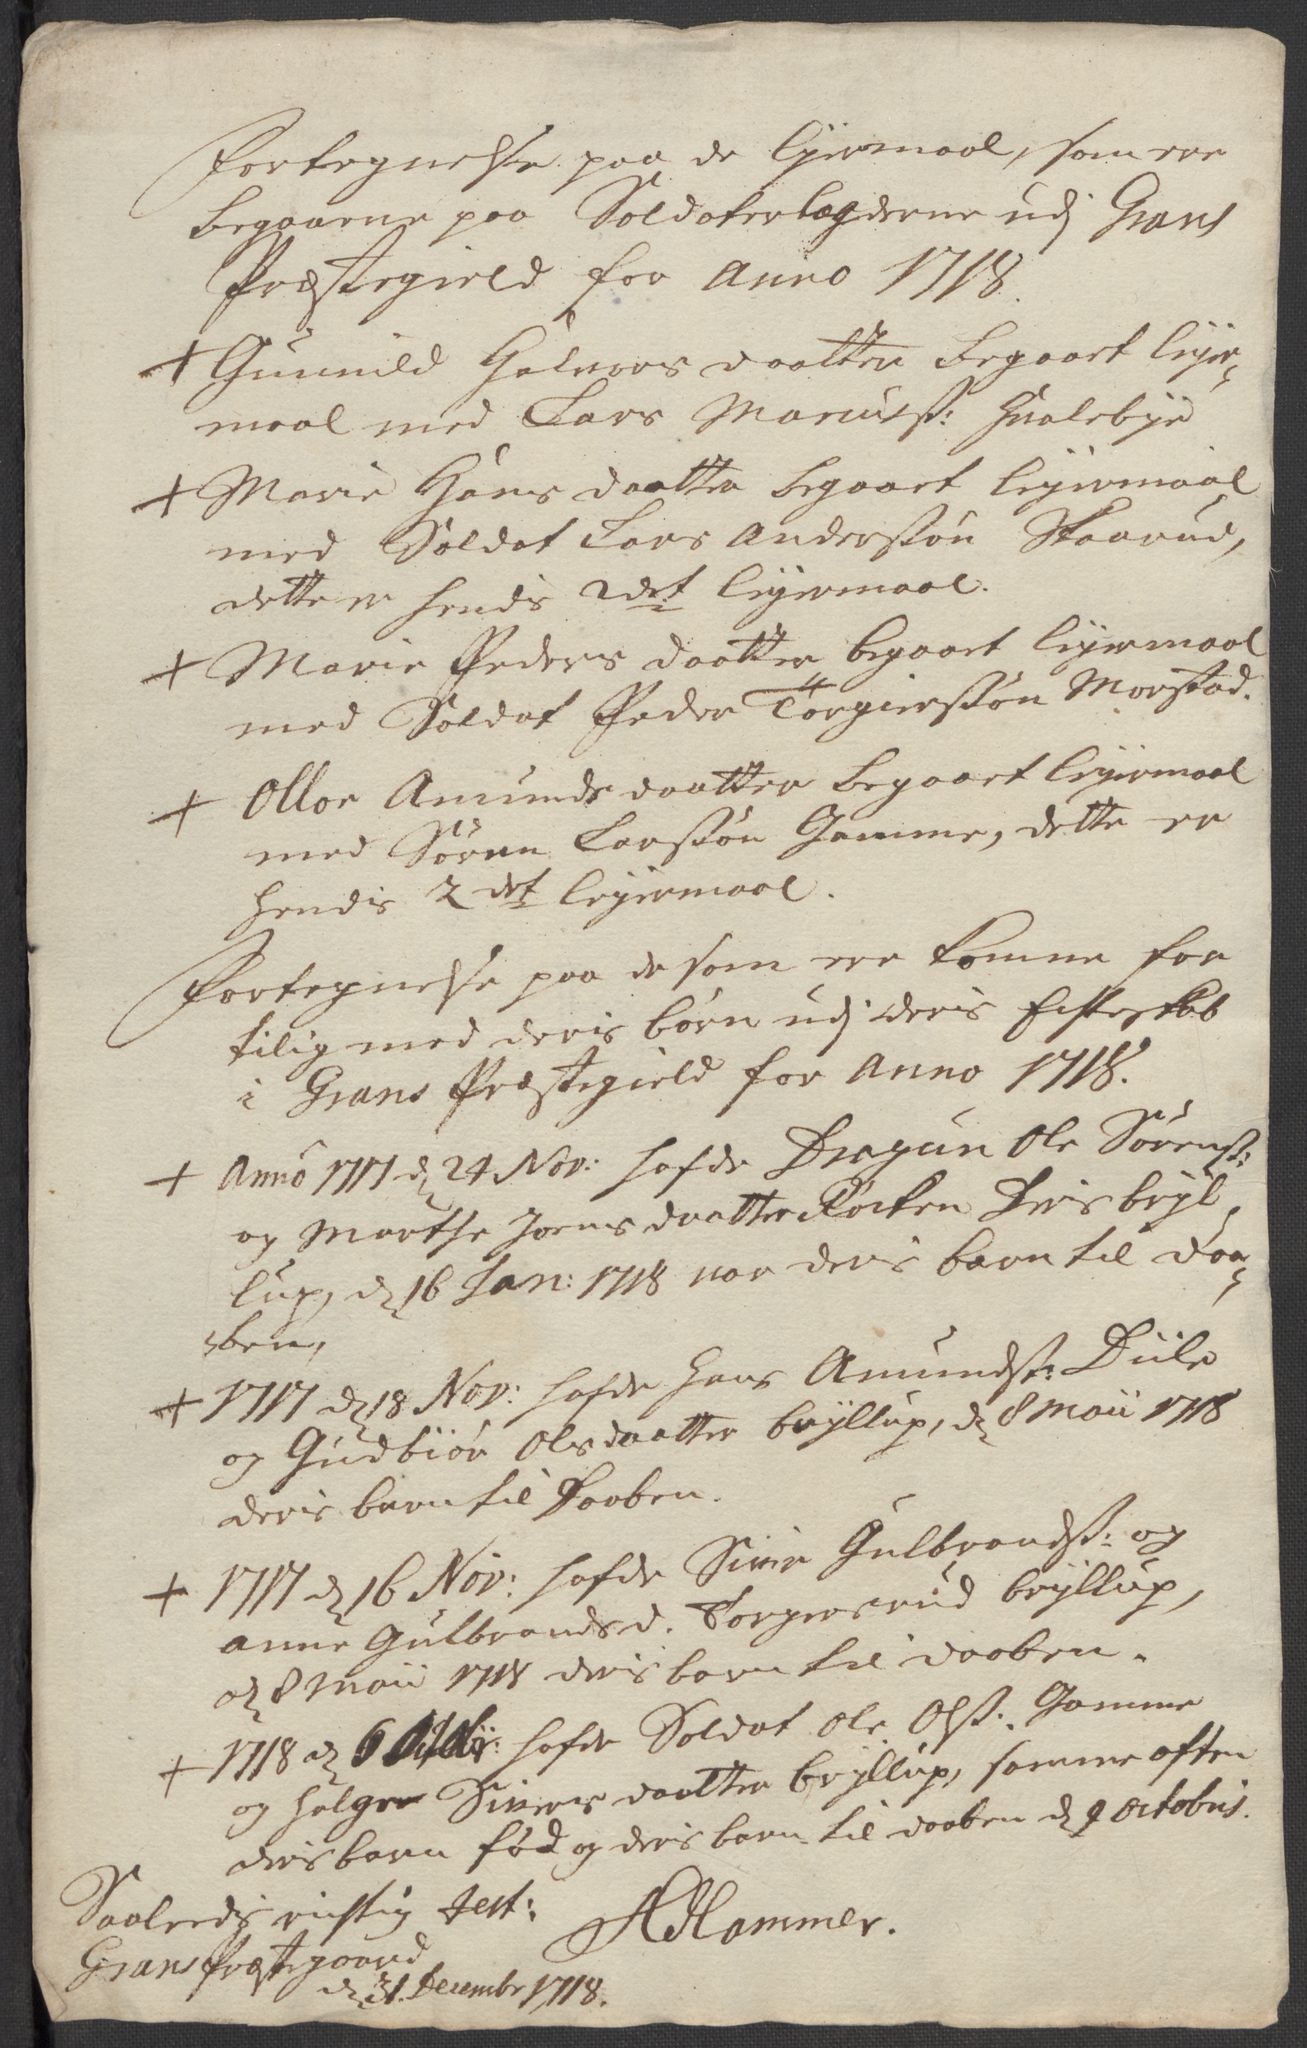 Fortegnelse paa de lejermaal, som ere
begaaene paa Soldaterlægderne udj Grans
Præstegield for Anno 1718.
+ Gunnild Halvors daatter begaaet lejer-
maal med Lars : Hvalebye
+ Marie Hans daatter begaaet lejermaal
med Soldat Lars Anderssøn Skaarud,
dette er hendis 2det lejermaal.
+ Marie Peders daatter begaaet lejermaal
med Soldat Peder Torgierssøn Morstad.
+ Olloe Amunds daatter begaaet lejermaal
med Søren Larssøn Gamme, dette er
hendis 2det lejermaal.
Fortegnelse paa de som ere komne for
tilig med deris børn udj deris Echteskab
i Grans Præstegield for Anno 1718.
+ Anno 1717 d 24 Nov: hafde Dragun Ole Sørenss:
og Marthe Joens daatter Røcken deris bryl,
lup, d 16 Jan: 1718 var deris barn til daa-
ben,
+ 1717 d 18 Nov: hafde Hans Amundss: Diile
og Gudbiør Olsdaatter bryllup, d 8 Maii 1718
deris barn til Daaben.
+ 1717 d 16 Nov: hafde Siver Gulbrandss: og
Anne Gulbrandsd. Torgersrud bryllup,
d 8 Maii 1718 deris barn til daaben.
+ 1718 d 6 hafde Soldat Ole Olss: Gamme
og Helge Sivers daatter bryllup, samme aften
deris barn fød og deris barn til daaben d 9 octobris.
Saaleedis rigtig test:
AHammer.
Grans Præstegaard
d 31. Decembr 1718.